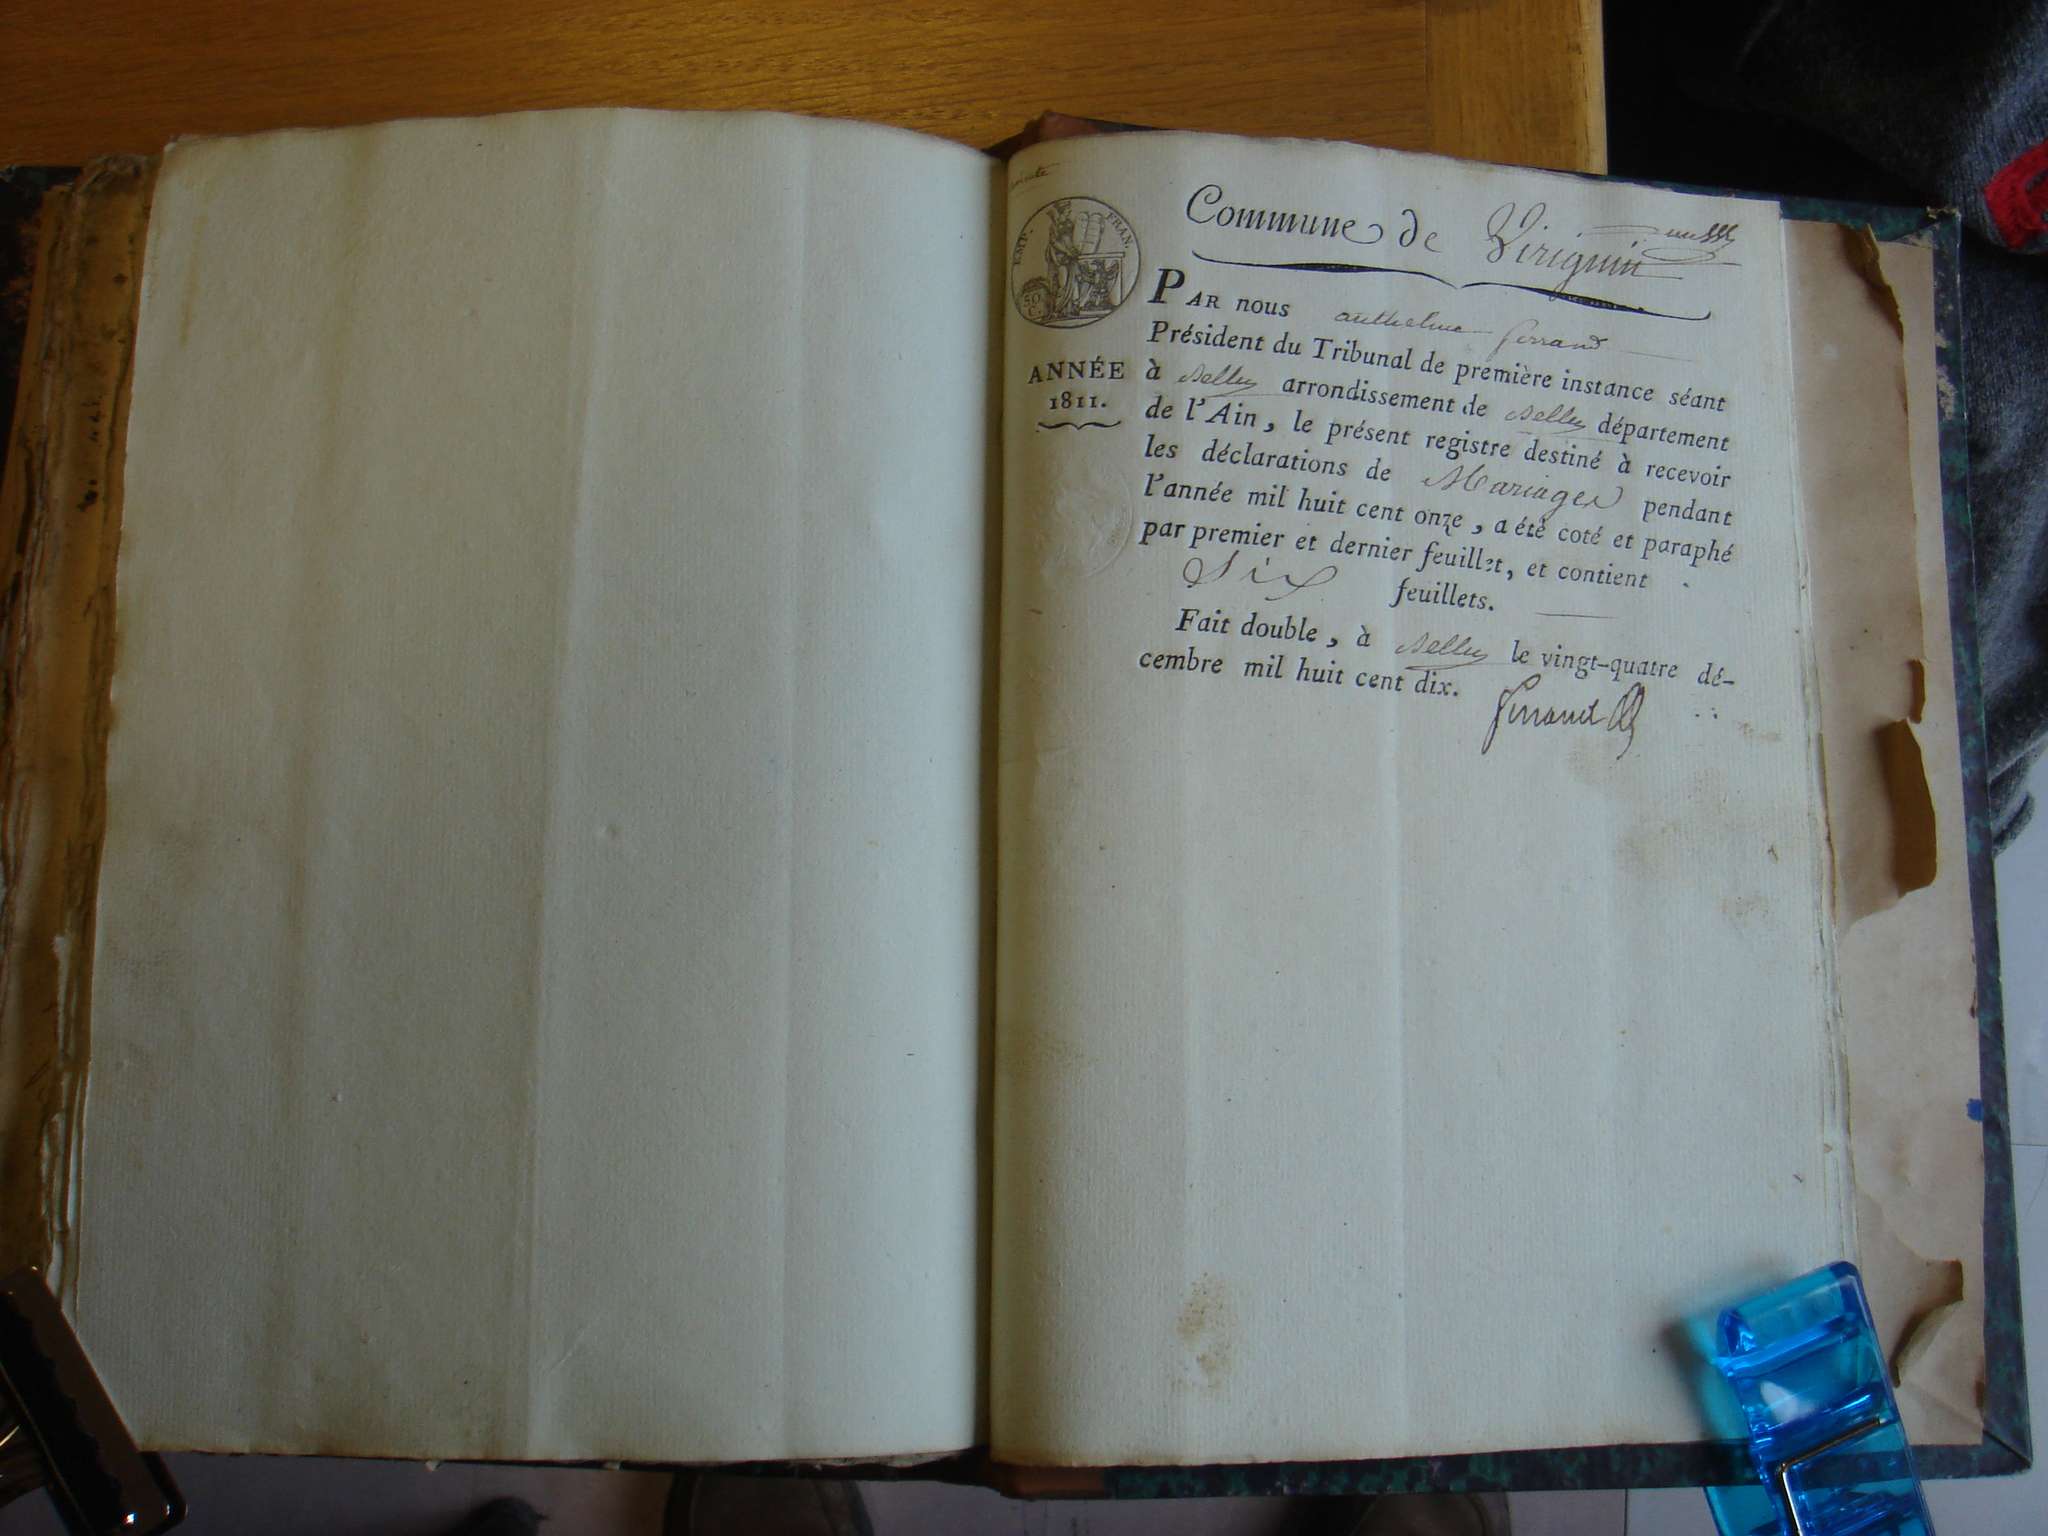 Commune de Virignin
EMP. FRAN.
50
C.
ANNÉE
1811.
PAR nous anthelme ferrand
Président du Tribunal de première instance séant
à Belley arrondissement de Belley département
de l'Ain, le présent registre destiné à recevoir
les déclarations de Mariages pendant
l'année mil huit cent onze, a été coté et paraphé
par premier et dernier feuillet, et contient
Six feuillets.
Fait double, à Belley le vingt-quatre dé-
cembre mil huit cent dix.
ferrand